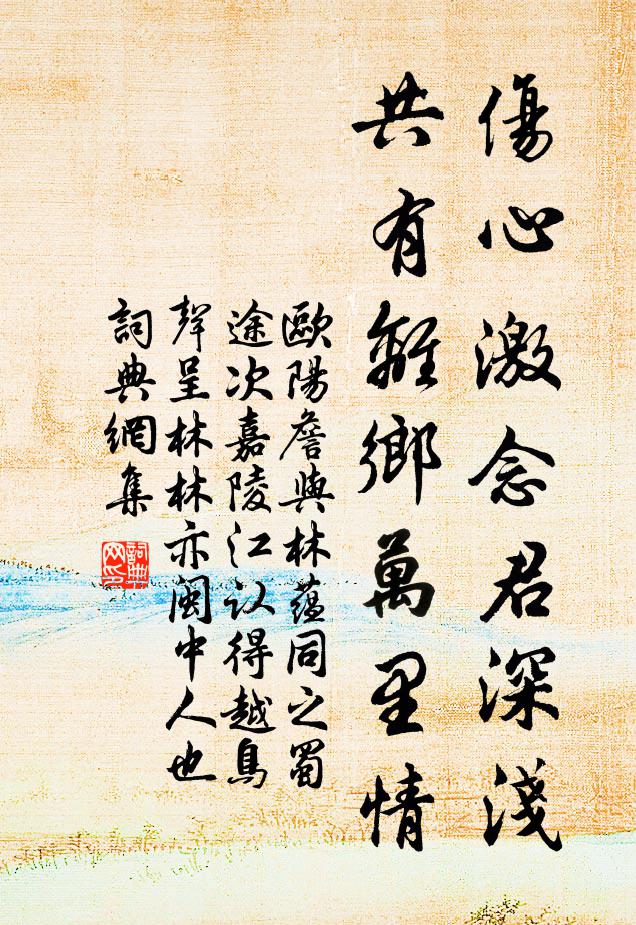 傷心激念君深淺
共有離鄉萬里情
歐陽詹與林蘊同之蜀
途次嘉陵江认得越鳥
聲呈林林亦閩中人也
詞典網集
詞典